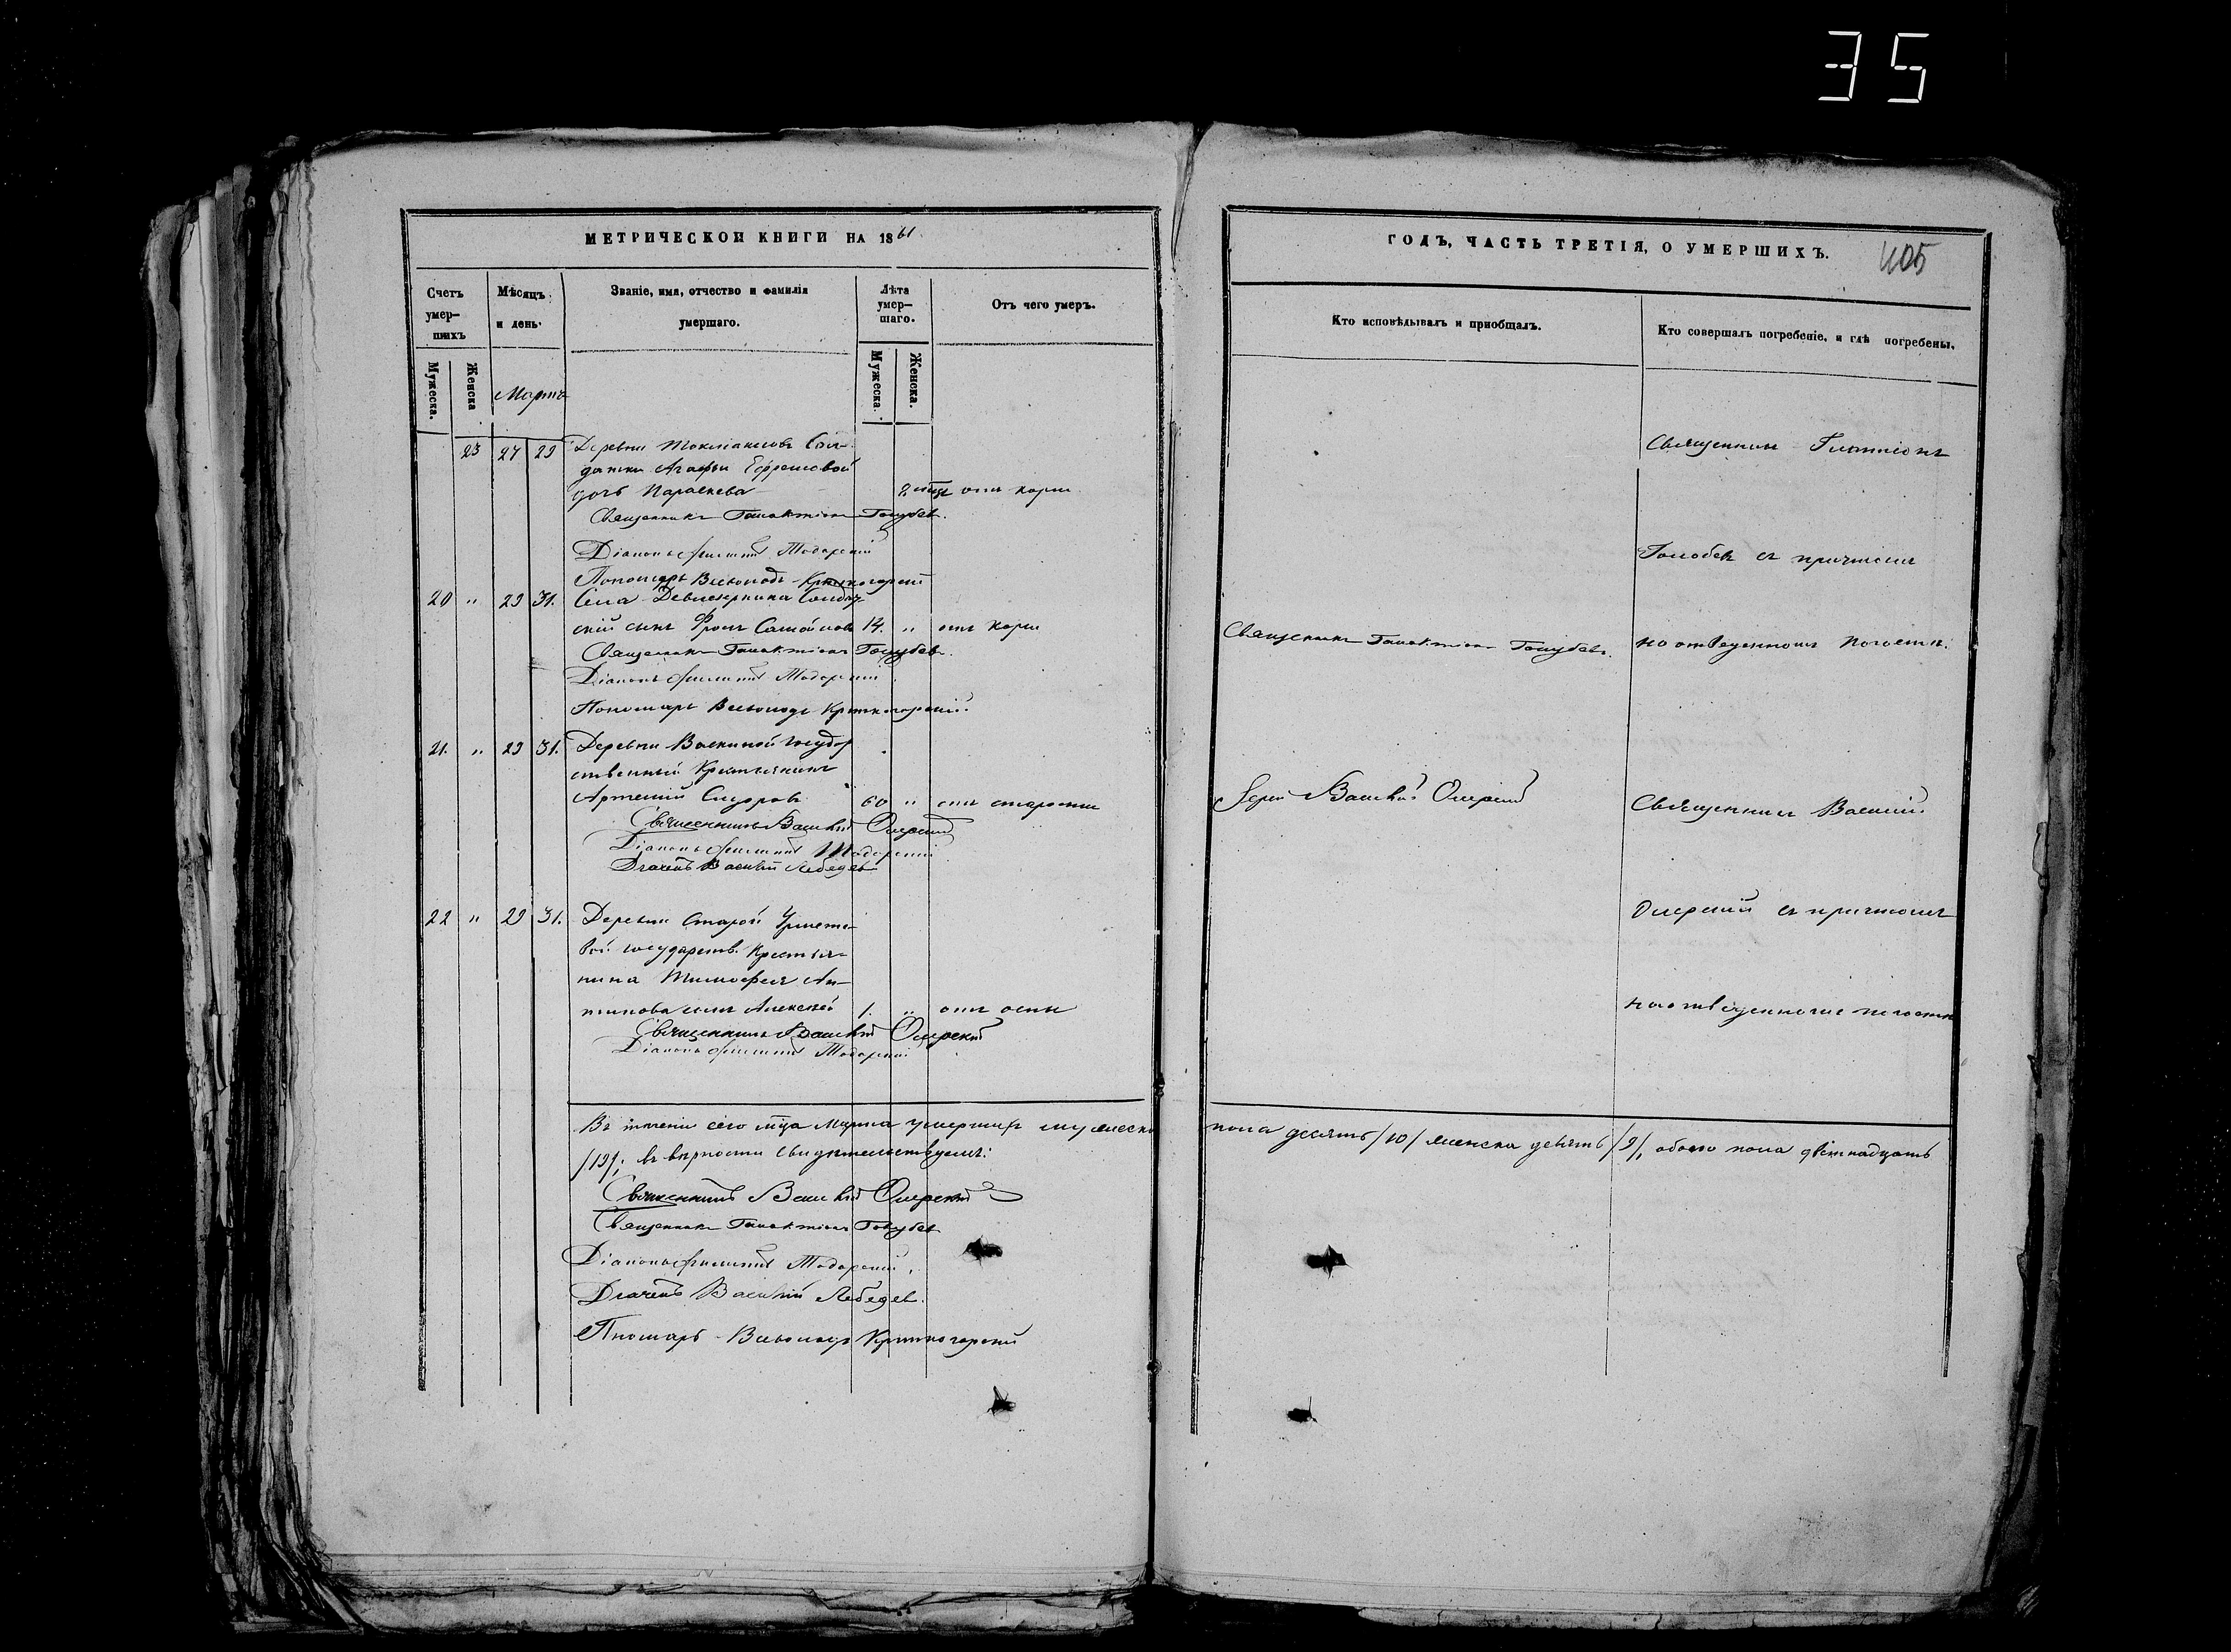 35
МЕТРИЧЕСКОЙ КНИГИ НА 1861
Счетъ умершихъ
Мѣсяцъ и день.
Званіе, имя, отчество и фамилія умершаго.
Лѣта умершаго.
Отъ чего умеръ.
Мужеска.
Женска
Мужеска.
Женска.
Марта
23 27 29 Деревни Сол-
датки Агафьи Ефремовой
дочь Параскева отъ кори
Священникъ Галактіонъ Голубевъ.
Діаконъ Филиппъ Тодорскій
Пономарь Всеволодъ Крутогорскій
20 " 29 31. Села Девлезеркина Солдат-
скій сынъ Фролъ Самойловъ 14. " отъ кори
Священникъ Галактіонъ Голубевъ.
Діаконъ Филиппъ Тодорскій
Пономарь Всеволодъ Крутогорскій.
21. " 29 31. Деревни Васкиной государ
ственный Крестьянинъ
Артемій Сидоровъ 60 " отъ старости
Священникъ Василій Озерскій
Діаконъ Филиппъ Тодорскій
Дьячекъ Василій Лебедевъ
22 " 29 31. Деревни Старой Урмете-
вой государств. Крестья-
нина Тимофея Ан-
типова сынъ Алексѣй 1. " отъ оспы
Священникъ Василій Озерскій
Діаконъ Филиппъ Тодорскій
Въ теченіи сего м-ца Марта умершихъ мужеска
/19/; въ вѣрности свидѣтельствуемъ:
Священникъ Василій Озерскій
Священникъ Галактіонъ Голубевъ
Діаконъ Филиппъ Тодорскій,
Дьячекъ Василій Лебедевъ.
Пномарь Всеволодъ Крутогорскій
ГОДЪ, ЧАСТЬ ТРЕТІЯ, О УМЕРШИХЪ.
405
Кто исповѣдывалъ и пріобщалъ.
Кто совершалъ погребеніе, и гдѣ погребены.
Священникъ
Голубевъ съ причтомъ
Священникъ Галактіонъ Голубевъ. на отведенномъ погостѣ.
Іерей Василій Озерскій
Священникъ Василій
Озерскій съ причтомъ
на отведенномъ погостѣ
пола десять /10/ женска девять /9/, обоего пола девятнадцать